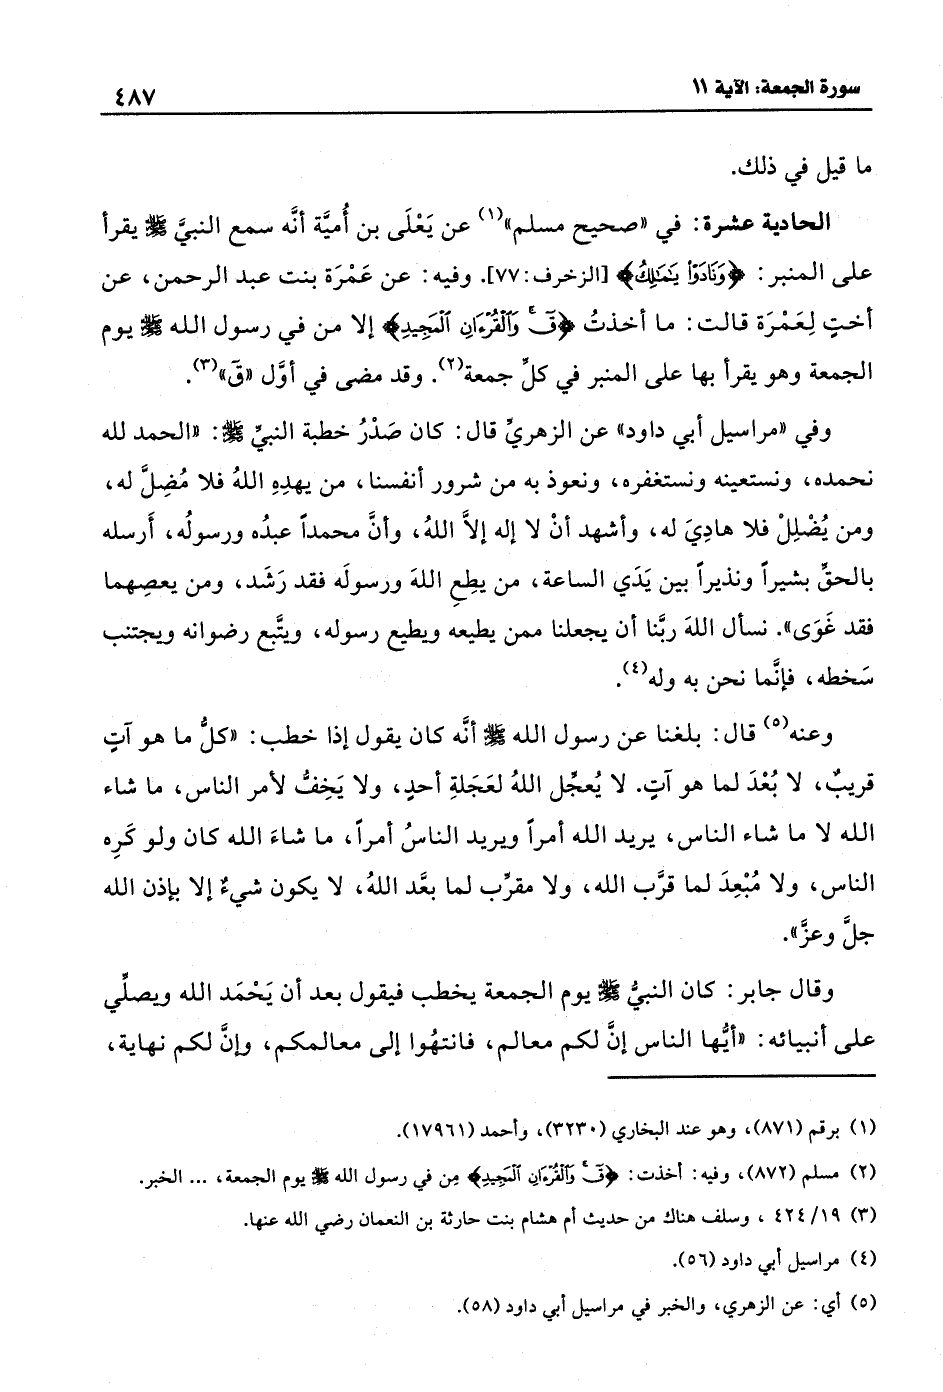 سورة الجمعة: الآية ١١
٤٨٧
ما قيل في ذلك.
الحادية عشرة: في «صحيح مسلم»(١) عن يَعْلَى بن أُميَّة أنَّه سمع النبيَّ ﷺ يقرأ
على المنبر: ﴿وَنَادَوْا يَٰمَٰلِكُ﴾ [الزخرف:٧٧]. وفيه: عن عَمْرَة بنت عبد الرحمن، عن
أختٍ لِعَمْرَة قالت: ما أخذتُ ﴿قٓ ۚ وَٱلْقُرْءَانِ ٱلْمَجِيدِ﴾ إلا من في رسول الله ﷺ يوم
الجمعة وهو يقرأ بها على المنبر في كلِّ جمعة(٢). وقد مضى في أوَّل «قٓ»(٣).
وفي «مراسيل أبي داود» عن الزهريِّ قال: كان صَدْرُ خطبة النبيِّ ﷺ: «الحمد لله
نحمده، ونستعينه ونستغفره، ونعوذ به من شرور أنفسنا، من يهدِهِ اللهُ فلا مُضِلَّ له،
ومن يُضْلِلْ فلا هادِيَ له، وأشهد أنْ لا إله إلاَّ اللهُ، وأنَّ محمداً عبدُه ورسولُه، أَرسله
بالحقِّ بشيراً ونذيراً بين يَدَي الساعة، من يطِعِ اللهَ ورسولَه فقد رَشَد، ومن يعصِهما
فقد غَوَى». نسأل اللهَ ربَّنا أن يجعلنا ممن يطيعه ويطيع رسوله، ويتَّبع رضوانه ويجتنب
سَخطه، فإنَّما نحن به وله(٤).
وعنه(٥) قال: بلغنا عن رسول الله ﷺ أنَّه كان يقول إذا خطب: «كلُّ ما هو آتٍ
قريبٌ، لا بُعْدَ لما هو آتٍ. لا يُعجِّل اللهُ لعَجَلةِ أحدٍ، ولا يَخِفُّ لأمر الناس، ما شاء
الله لا ما شاء الناس، يريد الله أمراً ويريد الناسُ أمراً، ما شاءَ الله كان ولو كَرِه
الناس، ولا مُبْعِدَ لما قرَّب الله، ولا مقرِّب لما بعَّد اللهُ، لا يكون شيءٌ إلا بإذن الله
جلَّ وعزَّ».
وقال جابر: كان النبيُّ ﷺ يوم الجمعة يخطب فيقول بعد أن يَحْمَد الله ويصلِّي
على أنبيائه: «أيُّها الناس إنَّ لكم معالم، فانتهُوا إلى معالمكم، وإنَّ لكم نهاية،
(١) برقم (٨٧١)، وهو عند البخاري (٣٢٣٠)، وأحمد (١٧٩٦١).
(٢) مسلم (٨٧٢)، وفيه: أخذت: ﴿قٓ ۚ وَٱلْقُرْءَانِ ٱلْمَجِيدِ﴾ مِن في رسول الله ﷺ يوم الجمعة، ... الخبر.
(٣) ٤٢٤/١٩ ، وسلف هناك من حديث أم هشام بنت حارثة بن النعمان رضي الله عنها.
(٤) مراسيل أبي داود (٥٦).
(٥) أي: عن الزهري، والخبر في مراسيل أبي داود (٥٨).